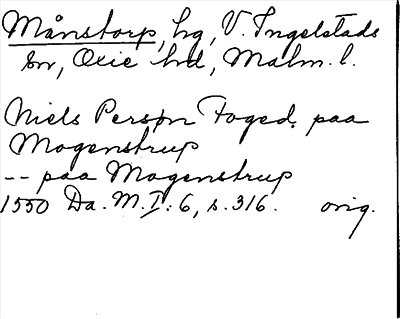 Månstorp, hg, V. Ingelstads
sn, Oxie hd, Malm. l.
Niels Persøn Foged, paa
Mogenstrup
-- paa Mogenstrup
1550 Da. M. I: 6, s. 316. orig.